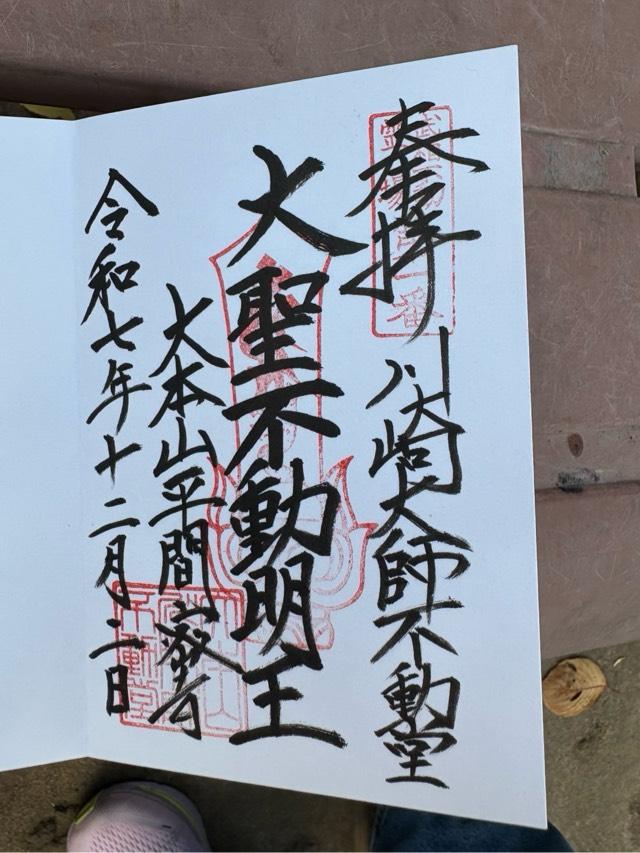 奉拝
川崎大師不動堂
大聖不動明王
大本山平間寺
令和七年十二月二日